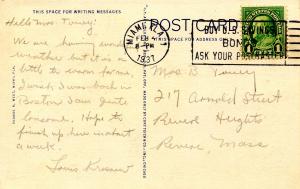 THIS SPACE FOR WRITING MESSAGES
POST CARD
Hello Mrs. Towey:
We are having wonderful
weather but it is a
little to warm for me.
I wish I was back in
Boston I am quite
lonesome. Hope to
finish up here in about
a week.
Louis
MIAMI, FLA.
FEB
8-PM
1937
BUY U.S. SAVINGS
BONDS
ASK YOUR POSTMASTER
1
Mrs. B Towey
217 Arnold Street
Revere Heights
Revere, Mass